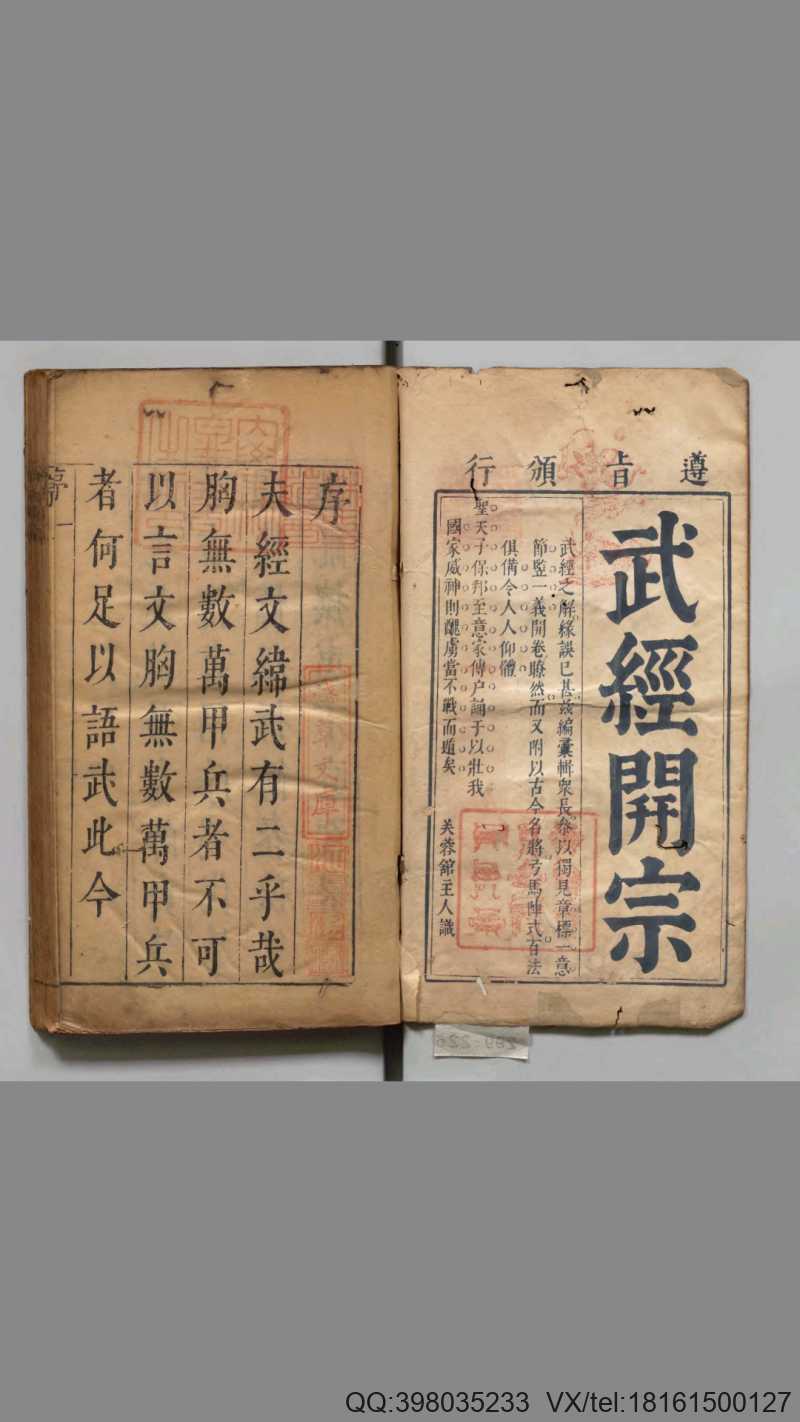 遵旨頒行
武經開宗
武經之解緣誤已甚茲編彙輯眾長參以獨見章標一意
節監一義開卷瞭然而又附以古今名將弓馬陣式百法
俱備令人人仰體
聖天子保邦至意家傳戶誦于以壯我
國家威神則醜虜當不戰而遁矣
芙蓉館主人識
序
夫經文緯武有二乎哉
胸無數萬甲兵者不可
以言文胸無數萬甲兵
者何足以語武此今
序 一
289-226
QQ:398035233 VX/tel:18161500127